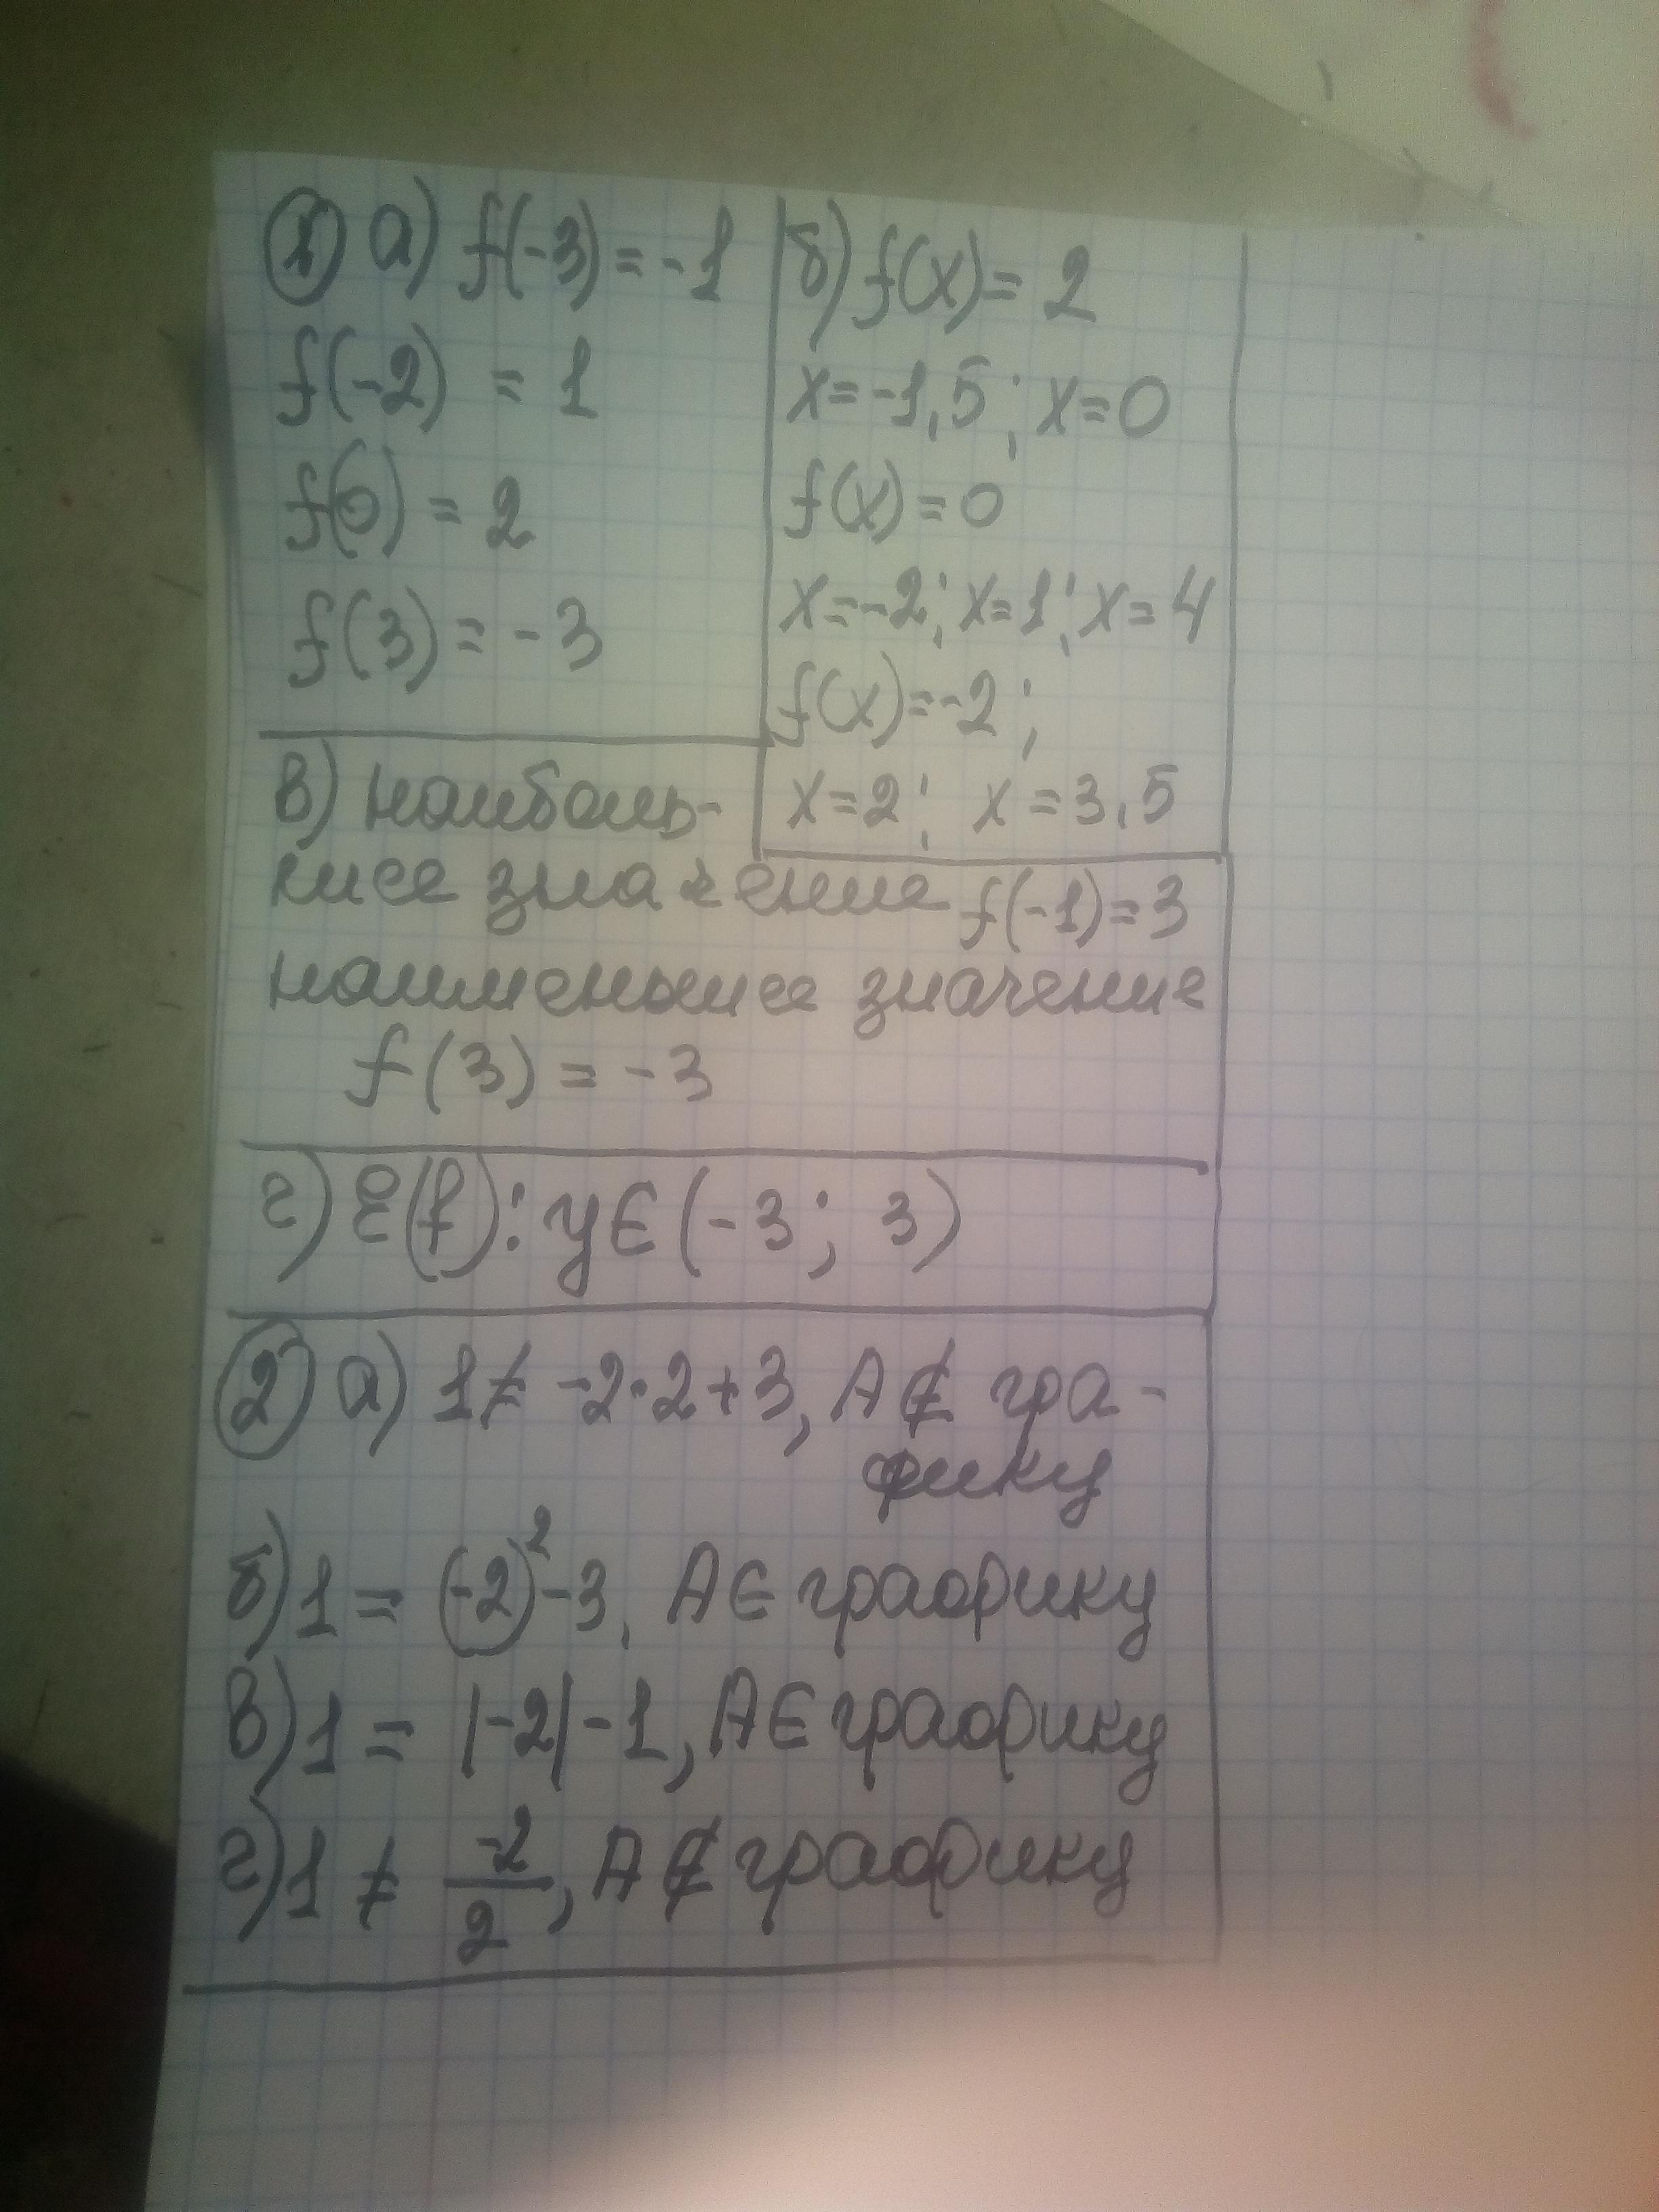 1) а) f(-3) = -1
f(-2) = 1
f(0) = 2
f(3) = -3
б) f(x) = 2
x = -1,5; x = 0
f(x) = 0
x = -2; x = 1; x = 4
f(x) = -2;
x = 2; x = 3,5
в) наиболь-
шее значение f(-1) = 3
наименьшее значение
f(3) = -3
г) E(f): y ∈ (-3; 3)
2) а) 1 ≠ -2·2+3, A ∉ гра-
фику
б) 1 = (-2)² - 3, A ∈ графику
в) 1 = |-2| - 1, A ∈ графику
г) 1 ≠ -2/2, A ∉ графику